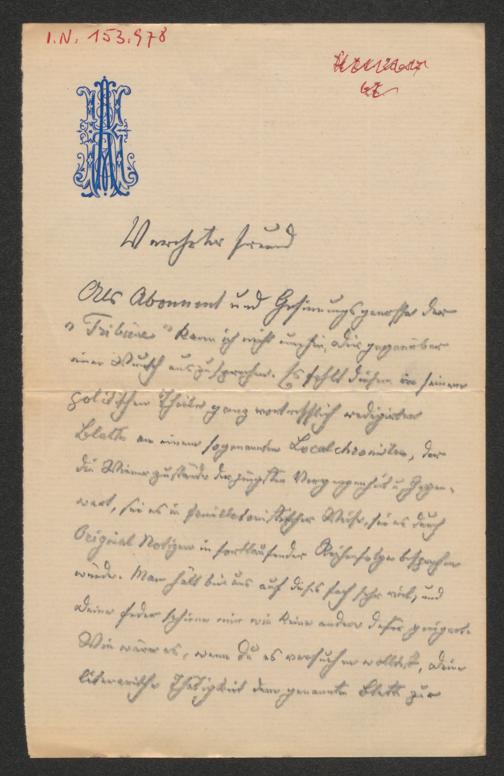 I.N. 153.978
Verehrter Freund
Als Abonnent und Gesinnungsgenosse der
"Tribüne" kann ich nicht umhin, Dir gegenüber
einen Wunsch auszusprechen. Es fehlt diesem in seinem
politischen Theile ganz vortrefflich redigirten
Blatte an einem sogenannten Localchronisten, der
die Wiener Zustände der jüngsten Vergangenheit u. Gegen-
wart, sei es in feuilletonistischer Weise, sei es durch
Original Notizen in fortlaufender Reihenfolge besprechen
würde. Man hält bei uns auf dieses Fach sehr viel, und
Deine Feder schiene mir wie keine andere dafür geeignet.
Wie wäre es, wenn Du es versuchen wolltest, Deine
literarische Thätigkeit dem genannten Blatte zur